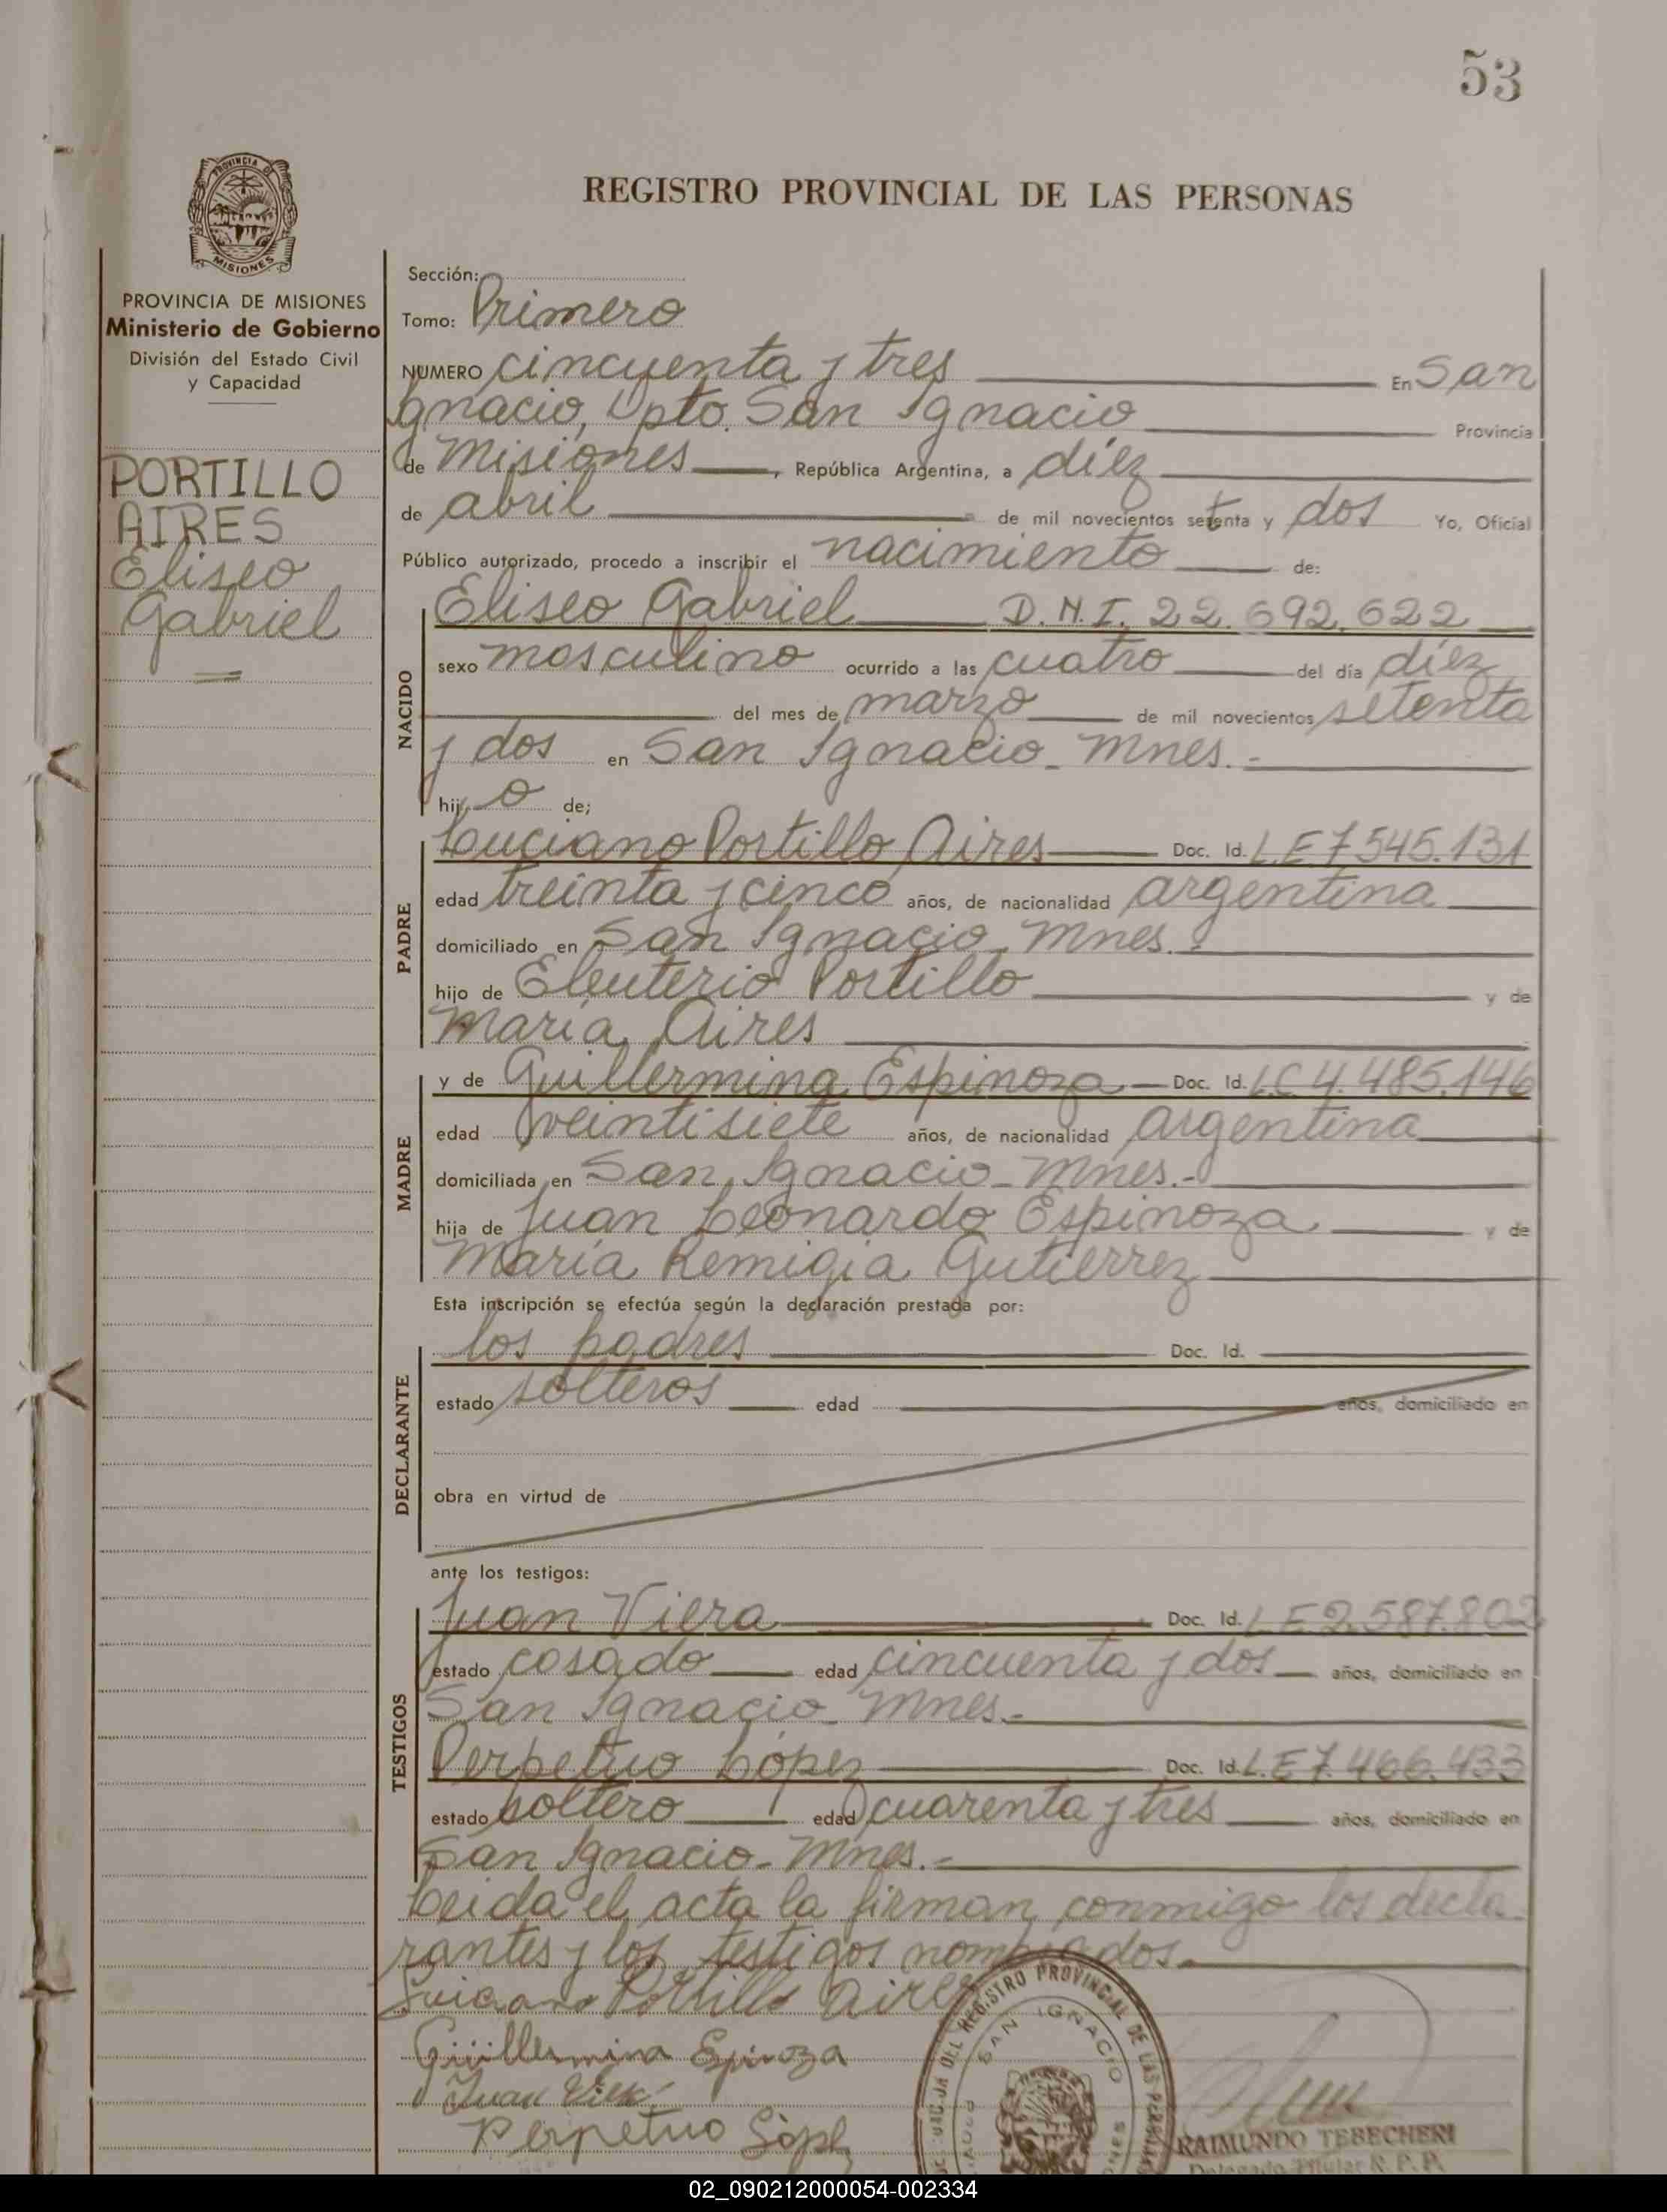 53
PROVINCIA DE
MISIONES
REGISTRO PROVINCIAL DE LAS PERSONAS
PROVINCIA DE MISIONES
Ministerio de Gobierno
División del Estado Civil
y Capacidad
PORTILLO
AIRES
Eliseo
Gabriel
Sección:
Tomo: Primero
NUMERO cincuenta y tres En San
Ignacio, Dpto. San Ignacio Provincia
de Misiones, República Argentina, a diez
de abril de mil novecientos setenta y dos Yo, Oficial
Público autorizado, procedo a inscribir el nacimiento de:
NACIDO
Eliseo Gabriel D.N.I. 22.692.622
sexo masculino ocurrido a las cuatro del día diez
del mes de marzo de mil novecientos setenta
y dos en San Ignacio - Mnes.-
hijo de;
PADRE
Luciano Portillo Aires Doc. Id. L.E 7.545.131
edad treinta y cinco años, de nacionalidad argentina
domiciliado en San Ignacio, Mnes.-
hijo de Eleuterio Portillo y de
María Aires
MADRE
y de Guillermina Espinoza Doc. Id. L.C 4.485.146
edad veintisiete años, de nacionalidad argentina
domiciliada en San Ignacio - Mnes.-
hija de Juan Leonardo Espinoza y de
María Remigia Gutierrez
Esta inscripción se efectúa según la declaración prestada por:
DECLARANTE
los padres Doc. Id.
estado solteros edad años, domiciliado en
obra en virtud de
ante los testigos:
TESTIGOS
Juan Viera Doc. Id. L.E 2.587.802
estado casado edad cincuenta y dos años, domiciliado en
San Ignacio - Mnes.-
Perpetuo López Doc. Id. L.E 7.466.433
estado soltero edad cuarenta y tres años, domiciliado en
San Ignacio - Mnes.-
Leida el acta la firman conmigo los decla-
rantes y los testigos nombrados.
Luciano Portillo Aires
Guillermina Espinoza
Juan
Perpetuo López
DEL REGISTRO PROVINCIAL DE LAS PERSONAS
SAN IGNACIO
RAIMUNDO TEBECHERI
Delegado Titular R. P. P.
02_090212000054-002334